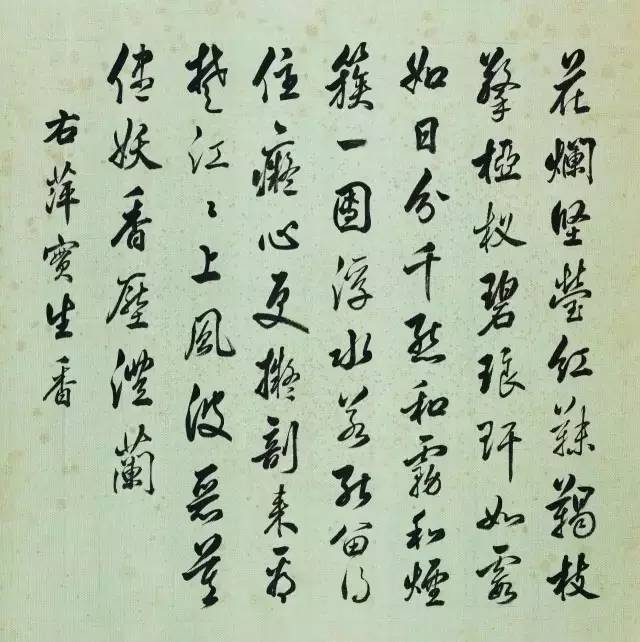 花爛堅瑩紅靺鞨枝
擎椏杈碧琅玕如霞
如日分千點和霧和煙
簇一團浮水若能留得
住癡心更擬剖來看
楚江〻上風波惡莫
儘妖香壓澧蘭
右萍實生香